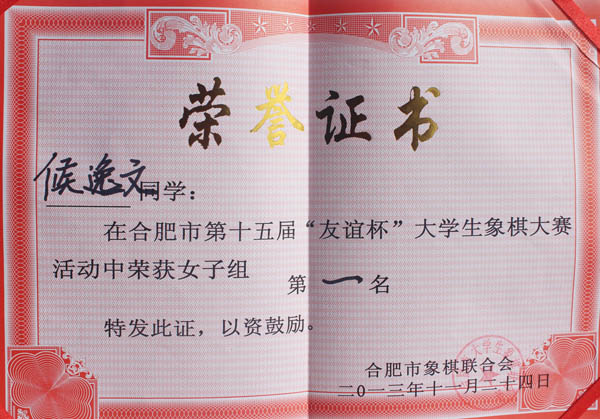 荣誉证书
候逸文同学：
在合肥市第十五届“友谊杯”大学生象棋大赛
活动中荣获女子组 第一名
特发此证，以资鼓励。
合肥市象棋联合会
二0一三年十一月二十四日